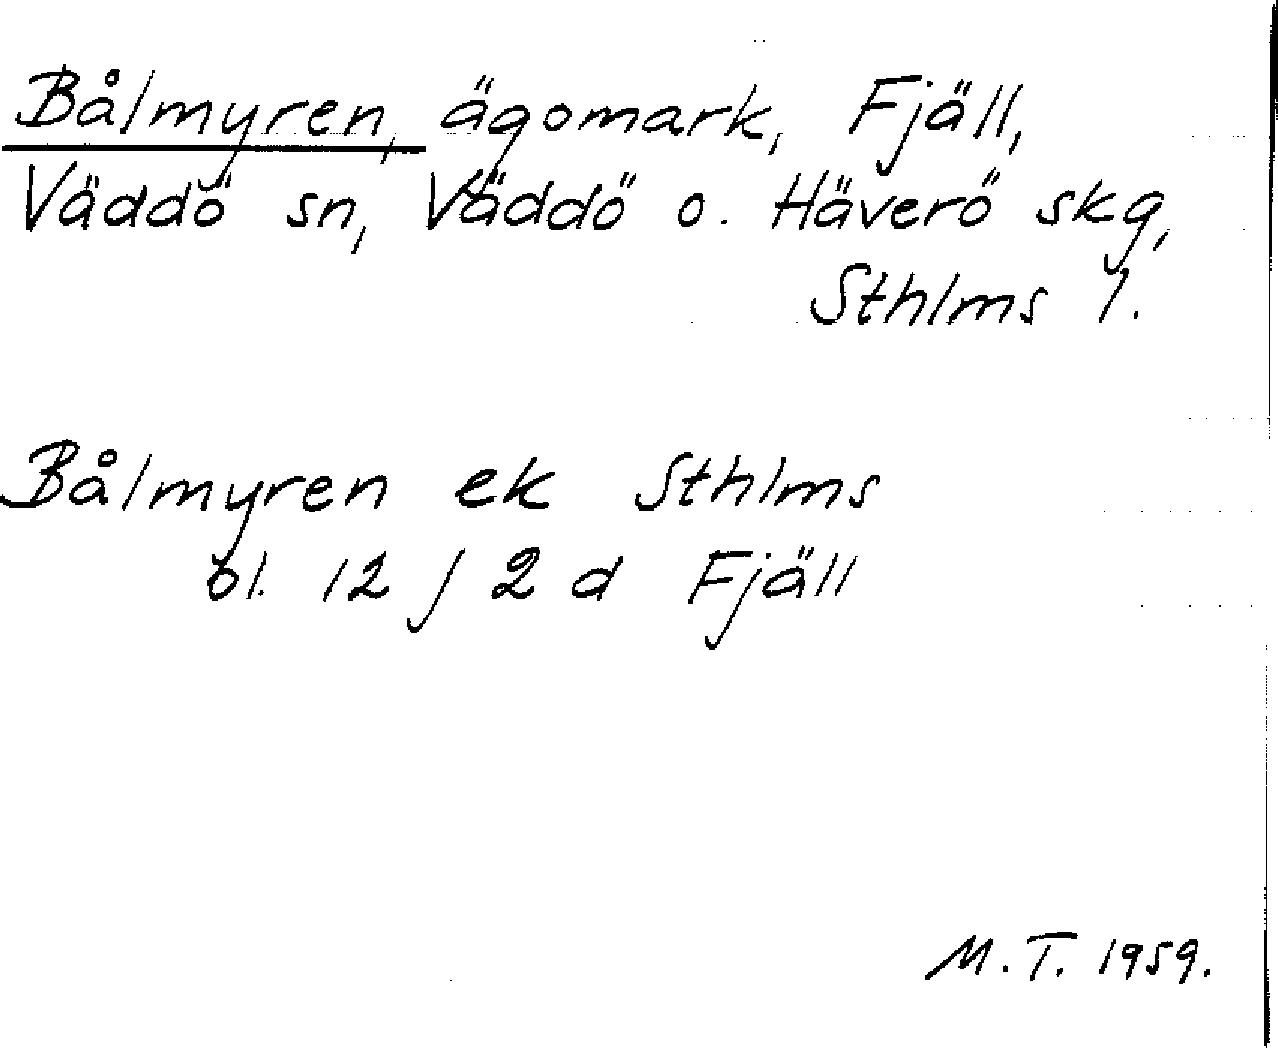 Bålmyren, ägomark, Fjäll,
Väddö sn, Väddö o. Häverö skg,
Sthlms l.
Bålmyren ek Sthlms
bl. 12 j 2 d Fjäll
M. T. 1959.